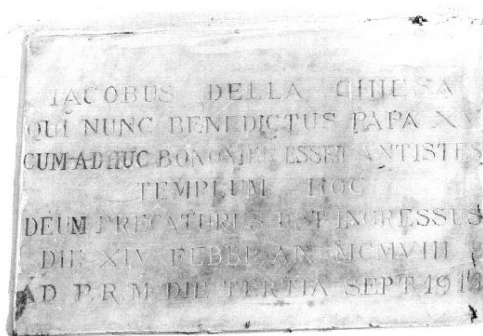 IACOBUS DELLA CHIESA
QUI NUNC BENEDICTUS PAPA XV
CUM ADHUC BONONIEN ESSET ANTISTES
TEMPLUM HOC
DEUM PRECATURUS EST INGRESSUS
DIE XIV AN MCMVIII
AD P.R.M. DIE TERTIA SEPT